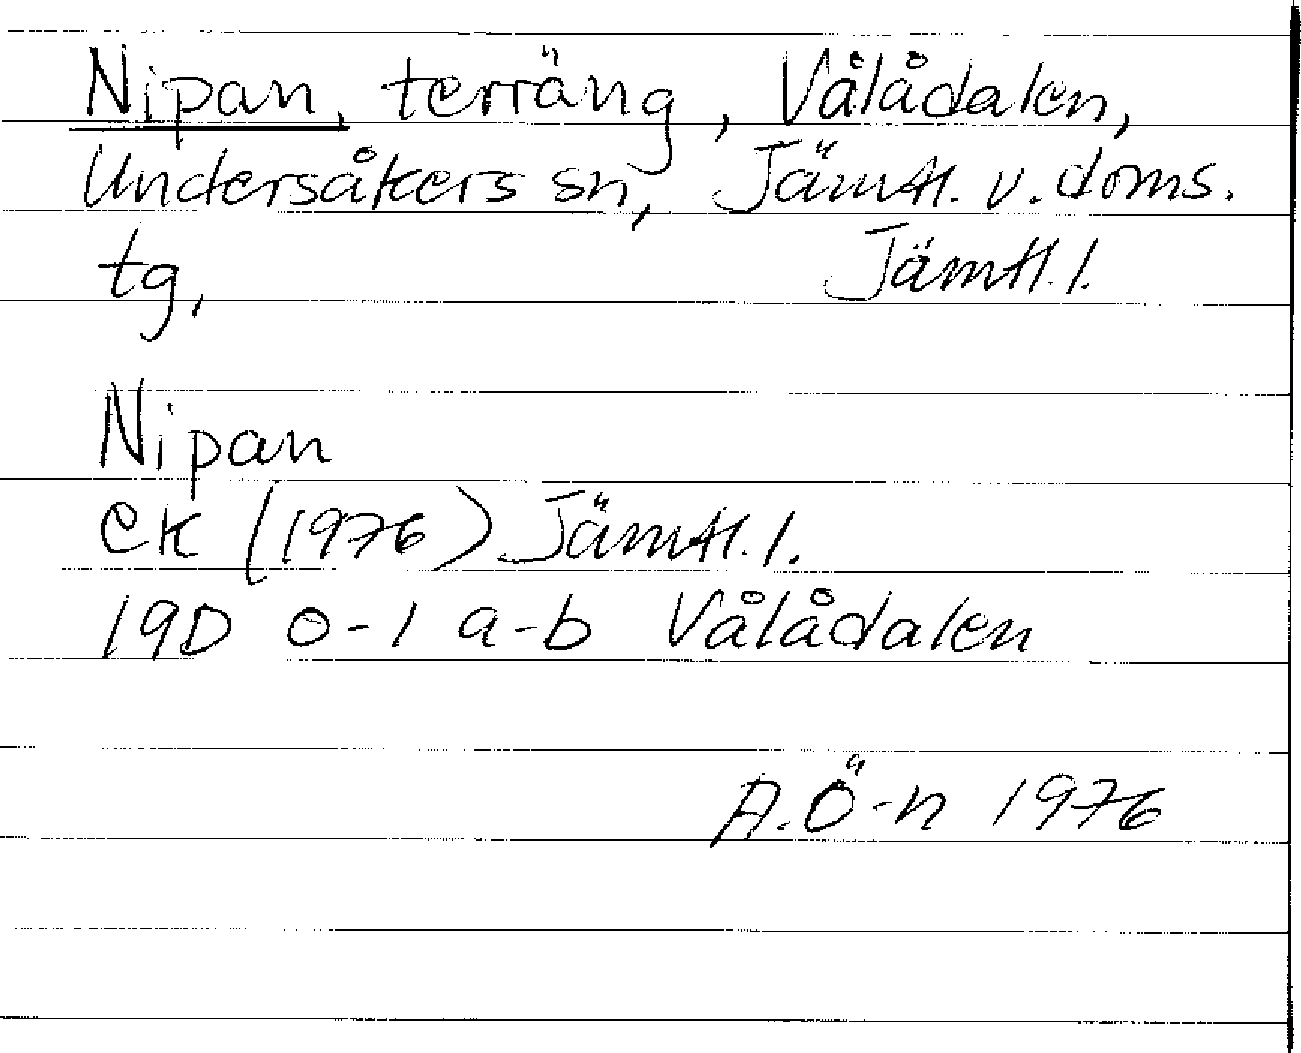 Nipan, terräng, Vålådalen,
Undersåkers sn, Jämtl. v. doms.
tg, Jämtl. l.
Nipan
ek (1976) Jämtl. l.
19D 0-1 a-b Vålådalen
A.Ö-n 1976